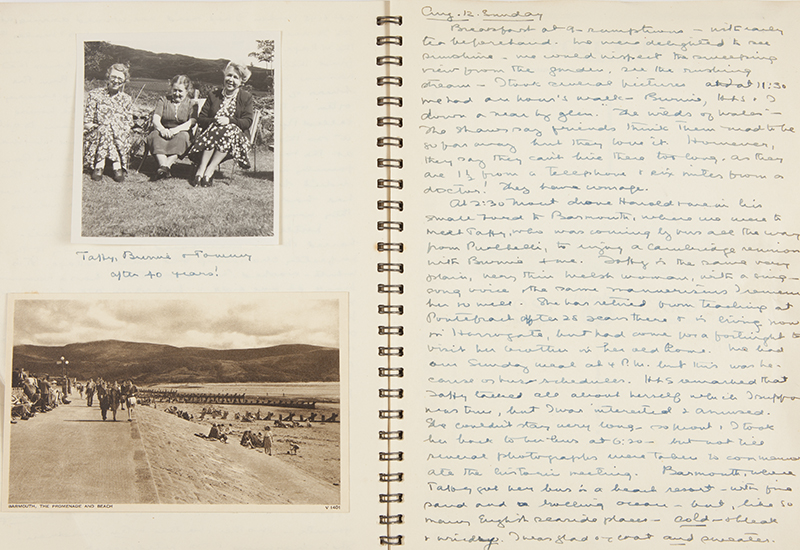 Taffy, Burnie & Tommy
after 40 years!
BARMOUTH, THE PROMENADE AND BEACH
V 1401
Aug. 12. Sunday
Breakfast at 9 - sumptuous - with early
tea beforehand. We were delighted to see
sunshine - we could inspect the sweeping
view from the garden, see the rushing
stream - I took several pictures at 11:30
we had an hour's walk - Burnie, HHS & I
down a near by glen. "The wilds of Wales" -
The Shaws say friends think them mad to be
so far away but they love it. However,
they say they can't live there too long, as they
are 1½ from a telephone & six miles from a
doctor! They have courage.
At 2:30 drove Harold & me in his
small Ford to Barmouth, where we were to
meet Taffy, who was coming by bus all the way
from Pwllheli, to enjoy a Cambridge reunion
with Burnie & me. Taffy is the same very
plain, very thin Welsh woman, with a sing-
song voice & the same mannerisms I remember
her so well. She has retired from teaching at
Pontefract after 28 years there & is living now
in Harrogate, but had come for a fortnight to
visit her brother in her old home. We had
our Sunday meal at 4 P.M. but this was be-
cause of bus schedules. HHS remarked that
Taffy talked all about herself which I suppose
was true, but I was interested & amused.
She couldn't stay very long - so Burnie & I took
her back to her bus at 6:30 - but not till
several photographs were taken to commemor
ate the historic meeting. Barmouth, where
Taffy got her bus is a beach resort - with fine
sand and a rolling ocean - but, like so
many English seaside places - cold - & bleak
& windy. I was glad of coat and sweater.